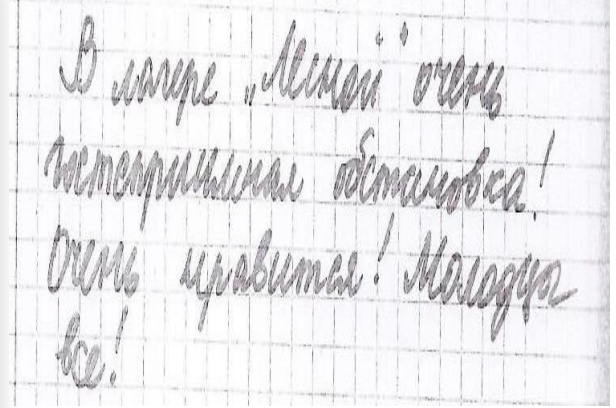 В лагере „Лесной" очень
гостеприимная обстановка!
Очень нравится! Молодцы
все!